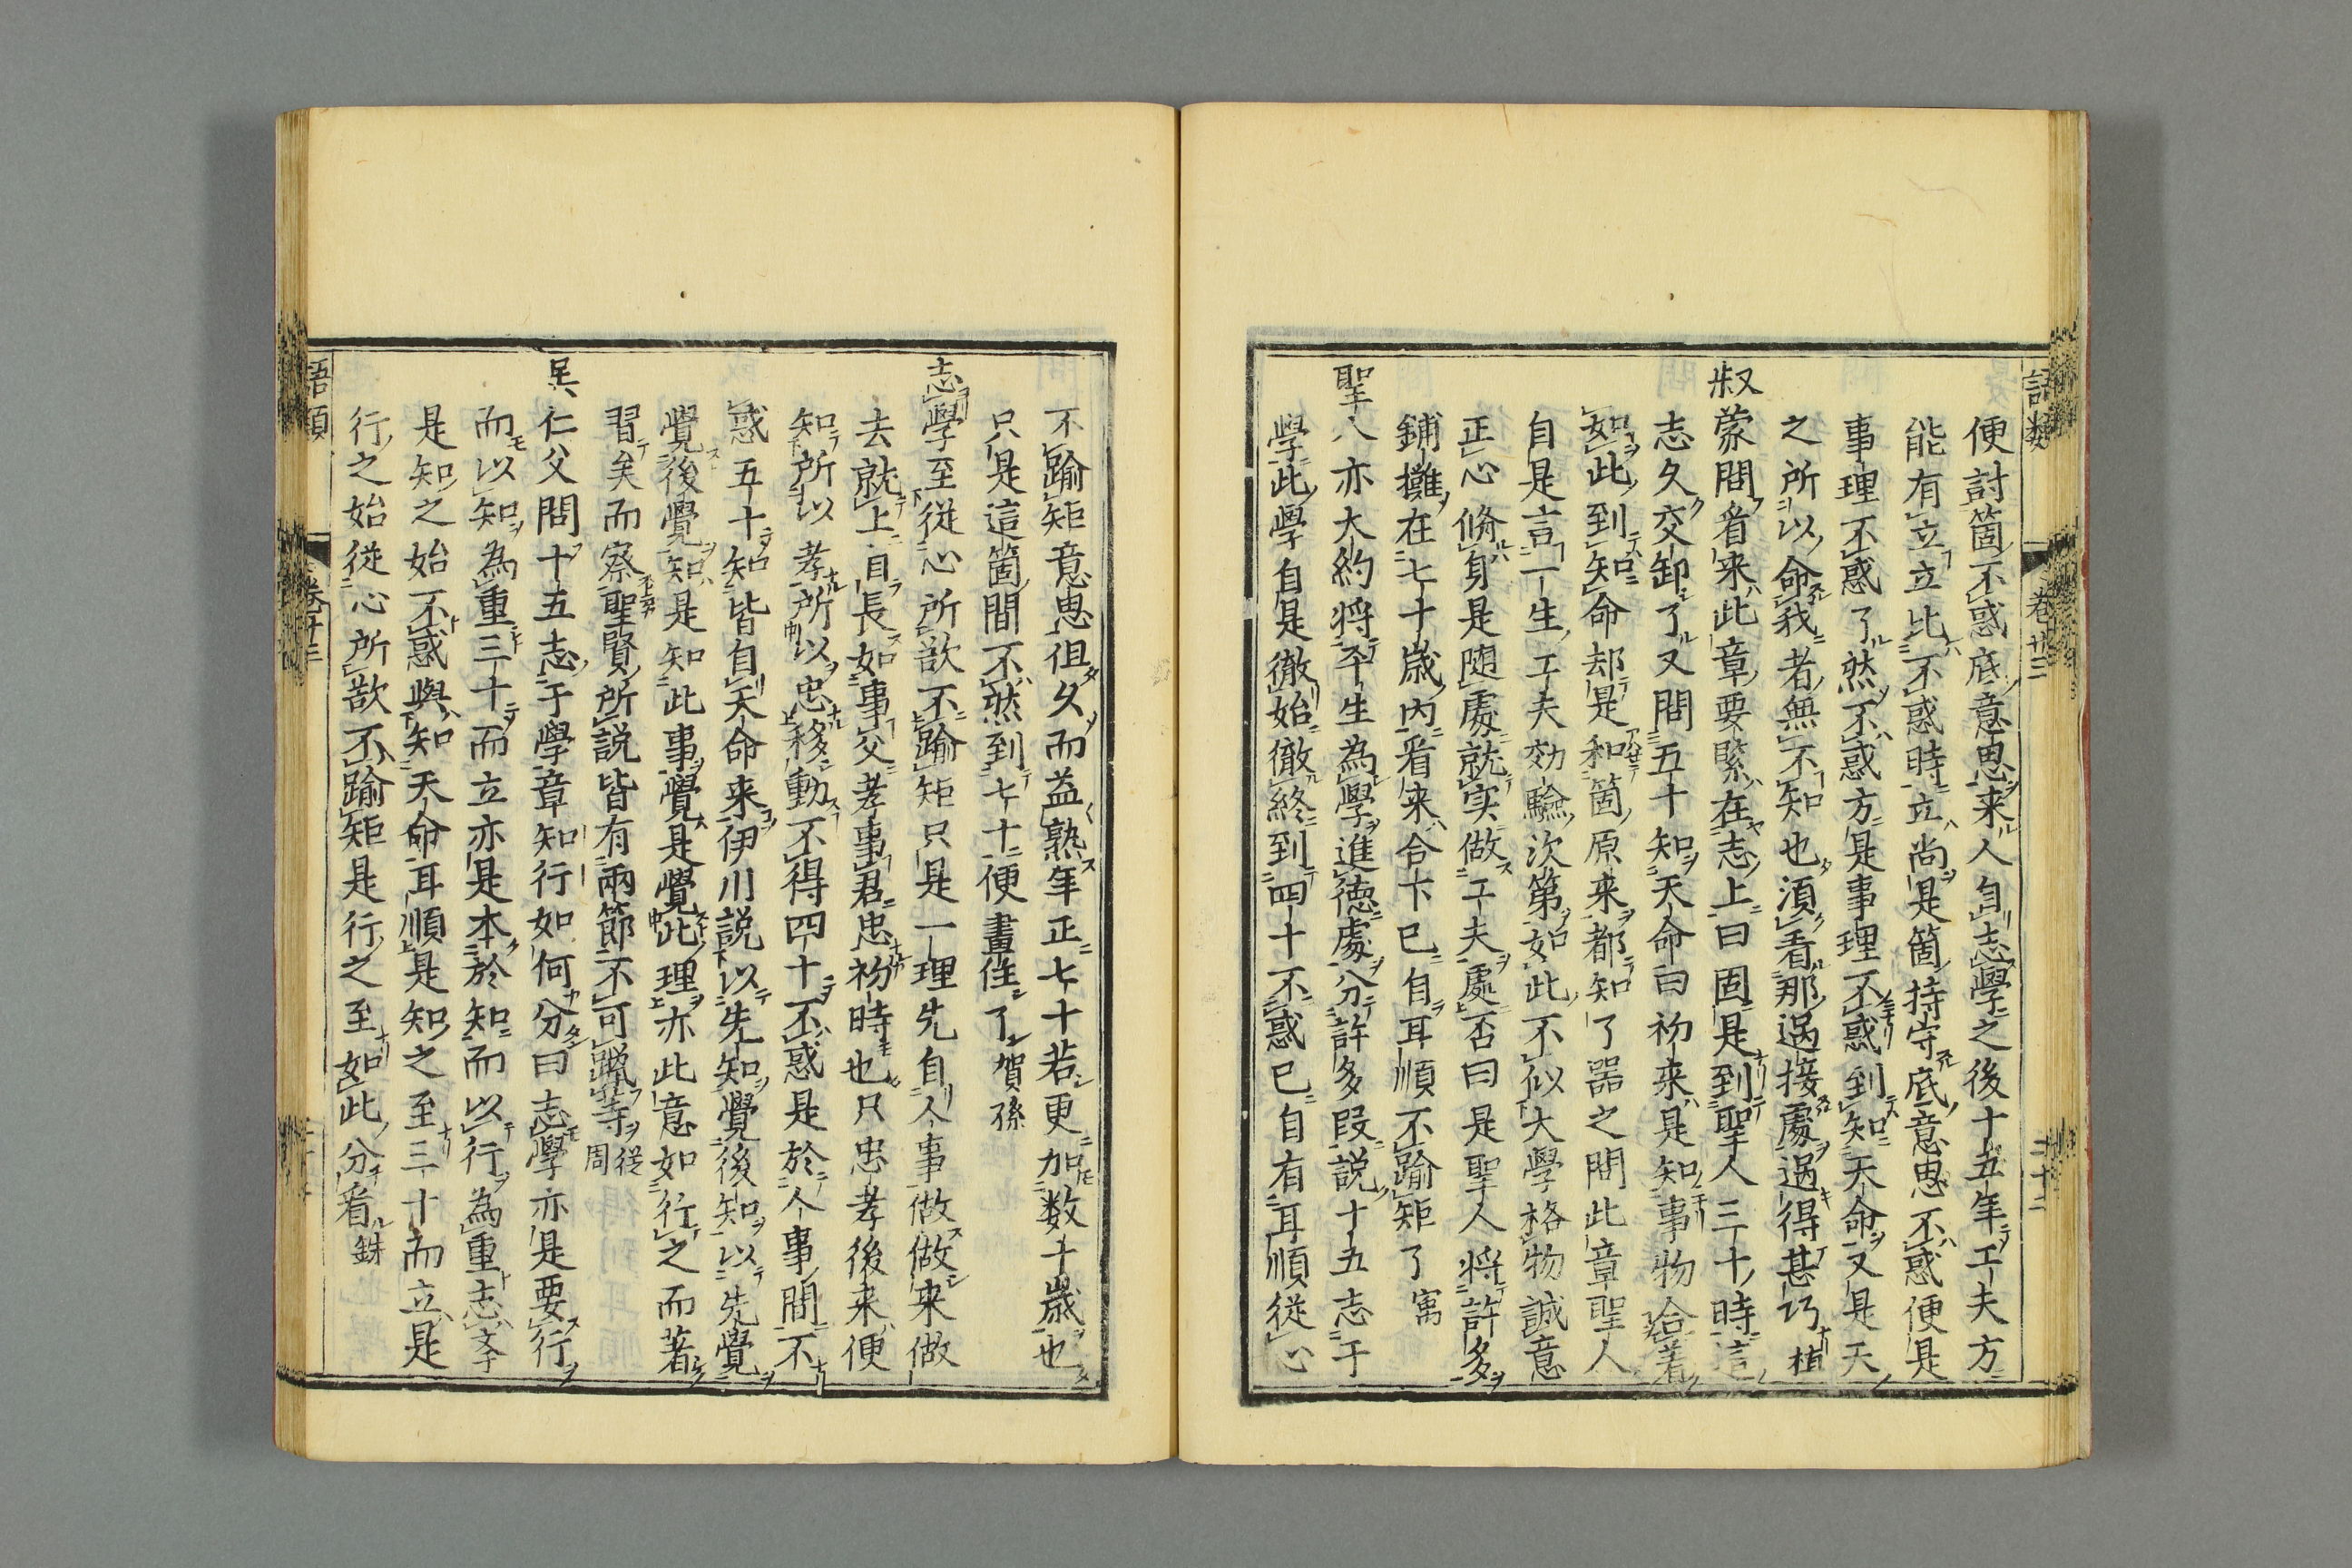 語類 卷廿三 二十二
便討箇不惑底意思来人自志學之後十五年工夫方
能有立立比不惑時立尚是箇持守底意思不惑便是
事理不惑了然不惑方是事理不惑到知天命又是天
之所以命我者無不知也須看那過接處過得甚巧植
叔蒙問看来此章要緊在志上曰固是到聖人三十時這
志久交卸了又問五十知天命曰初来是知事物合著
如此到知命却是和箇原来都知了器之問此章聖人
自是言一生工夫効驗次第如此不似大學格物誠意
正心脩身是随處就实做工夫處否曰是聖人将許多
鋪攤在七十歳内看来合下已自耳順不踰矩了㝢
聖人亦大約将平生為學進徳處分許多段説十五志于
學此學自是徹始徹終到四十不惑已自有耳順従心
不踰矩意思但久而益熟年正七十若更加数十歳也
只是這箇間不然到七十便畫住了賀孫
志學至従心所欲不踰矩只是一理先自人事做做来做
去就上自長如事父孝事君忠初時也只忠孝後来便
知所以孝所以忠移動不得四十不惑是於人事間不
惑五十知皆自天命来伊川説以先知覺後知以先覺
覺後覺知是知此事覺是覺此理亦此意如行之而著
習矣而察聖賢所説皆有兩節不可躐等従周
呉仁父問十五志于學章知行如何分曰志學亦是要行
而以知為重三十而立亦是本於知而以行為重志學
是知之始不惑與知天命耳順是知之至三十而立是
行之始従心所欲不踰矩是行之至如此分看銖
語類 卷廿三